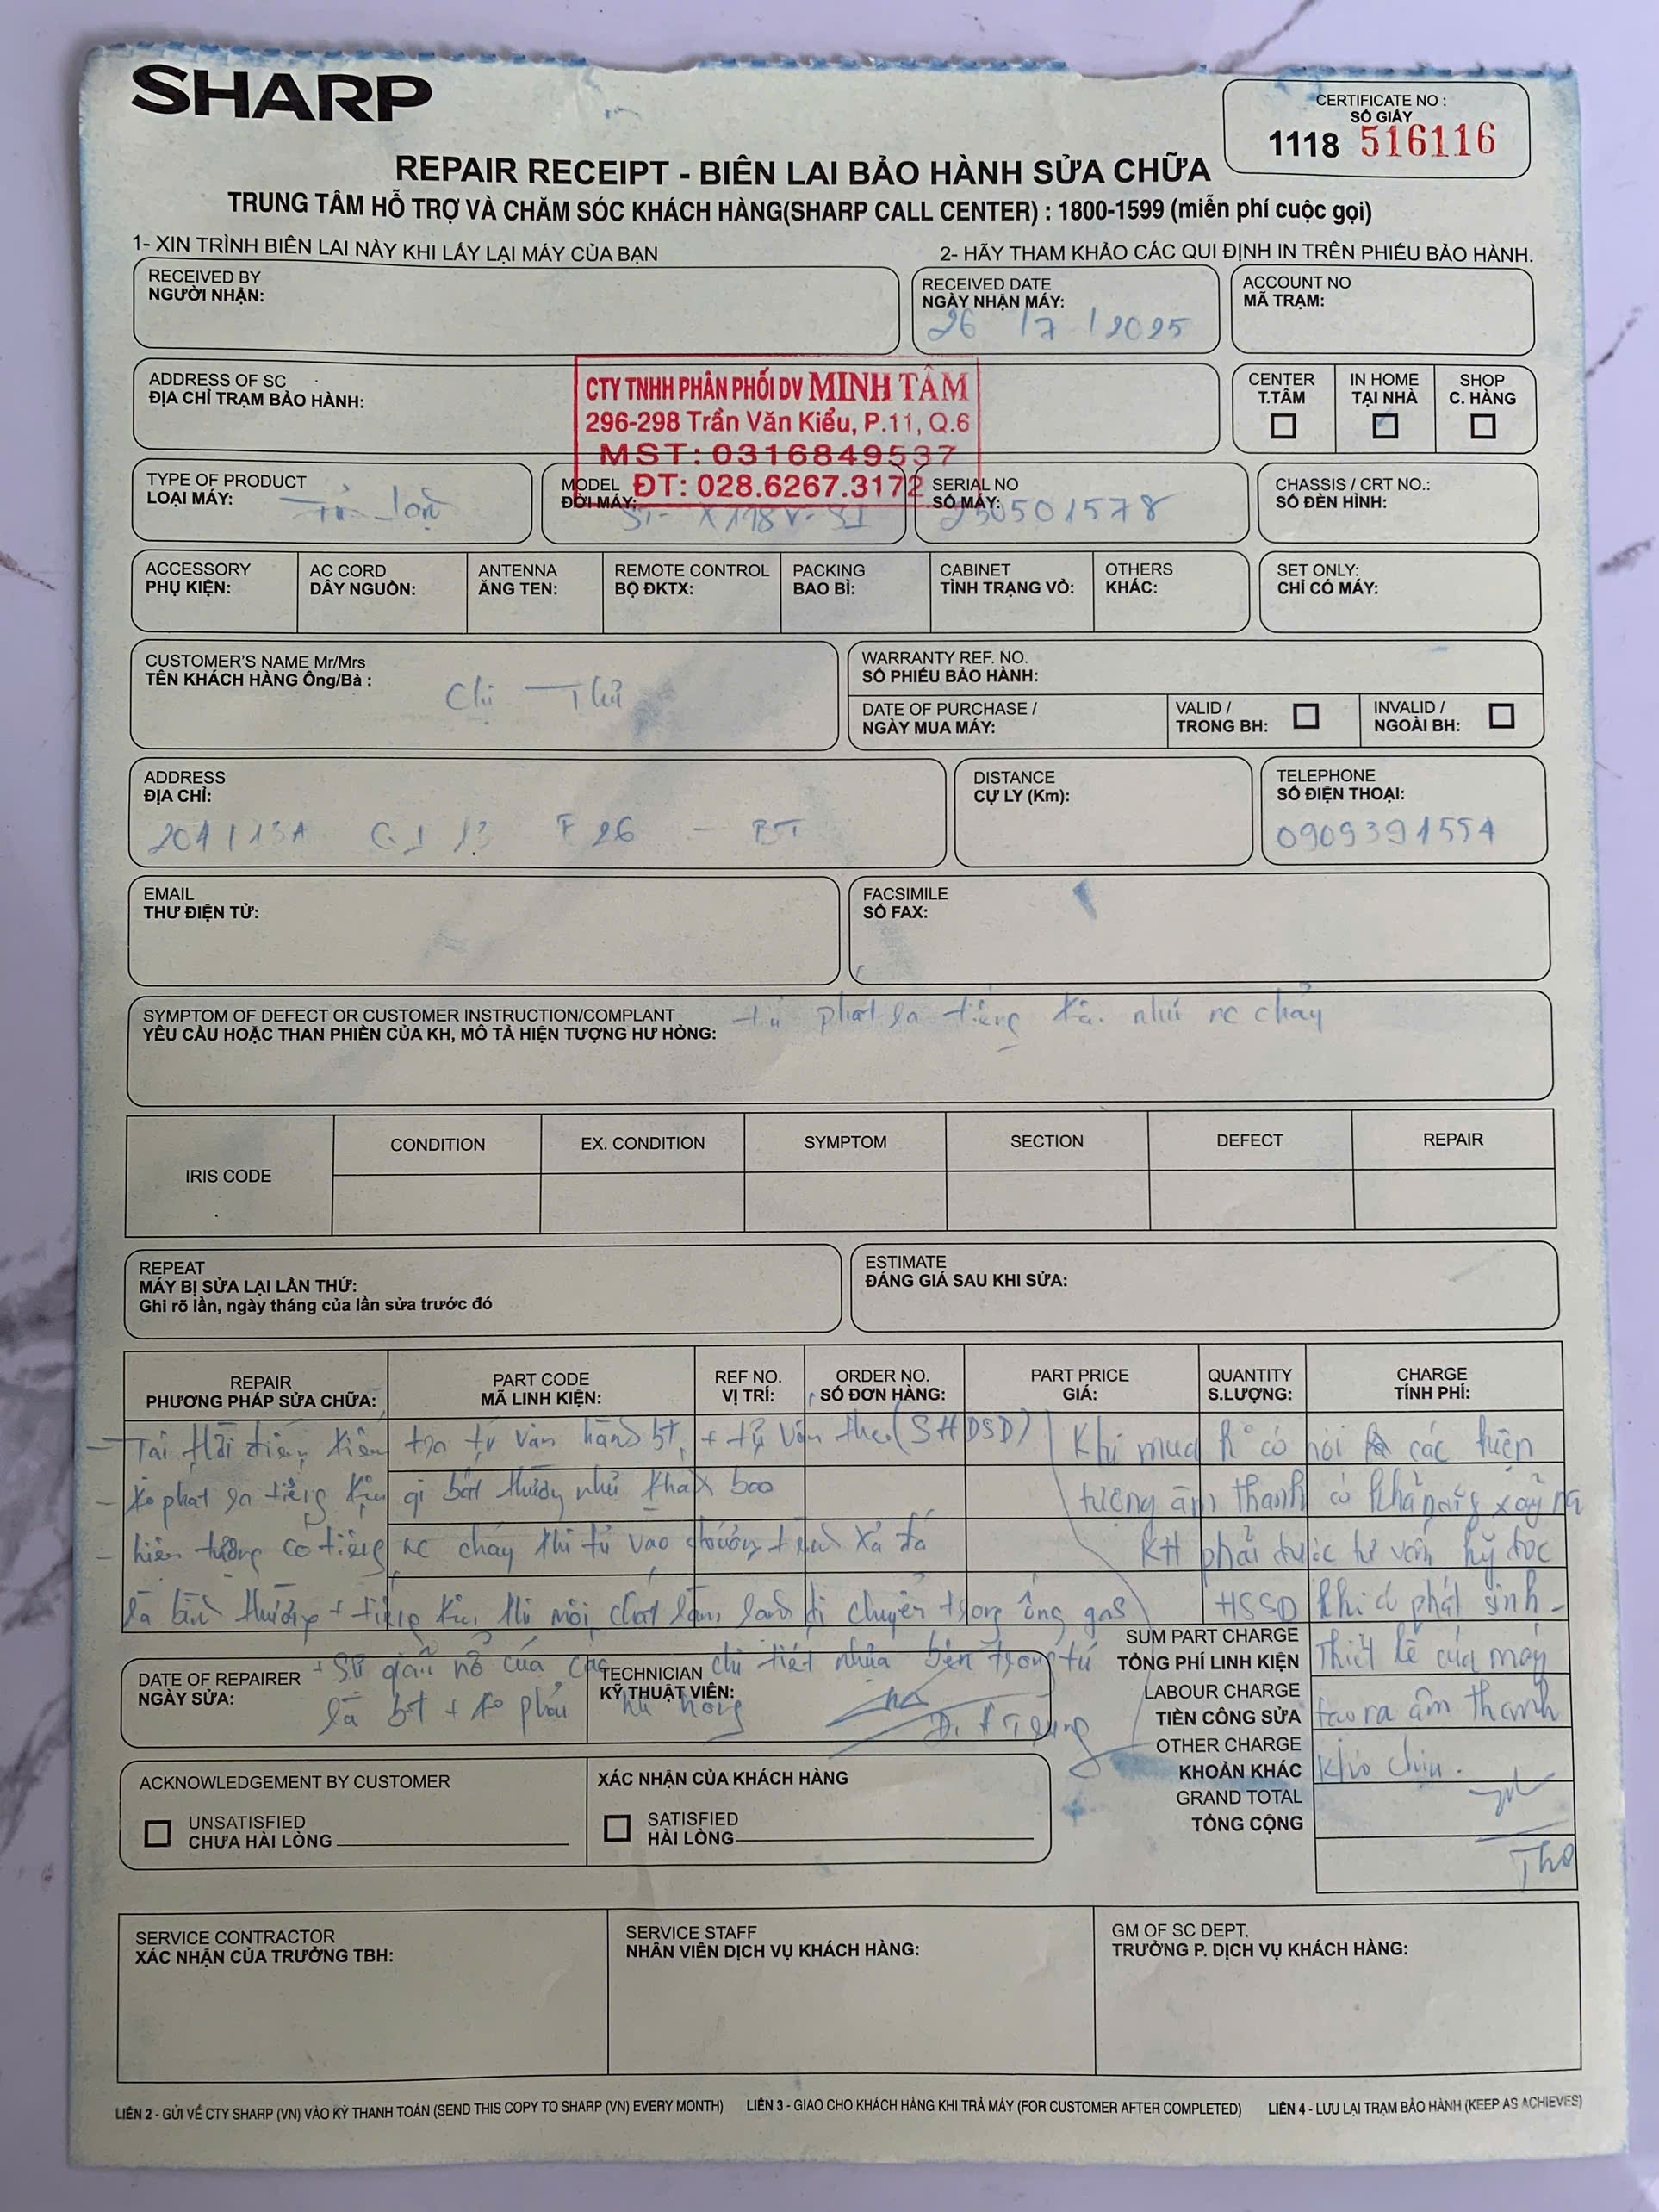 SHARP
CERTIFICATE NO :
SỐ GIẤY
1118 516116
REPAIR RECEIPT - BIÊN LAI BẢO HÀNH SỬA CHỮA
TRUNG TÂM HỖ TRỢ VÀ CHĂM SÓC KHÁCH HÀNG(SHARP CALL CENTER) : 1800-1599 (miễn phí cuộc gọi)
1- XIN TRÌNH BIÊN LAI NÀY KHI LẤY LẠI MÁY CỦA BẠN
2- HÃY THAM KHẢO CÁC QUI ĐỊNH IN TRÊN PHIẾU BẢO HÀNH.
RECEIVED BY
NGƯỜI NHẬN:
RECEIVED DATE
NGÀY NHẬN MÁY:
26 / 7 / 2025
ACCOUNT NO
MÃ TRẠM:
ADDRESS OF SC
ĐỊA CHỈ TRẠM BẢO HÀNH:
CTY TNHH PHÂN PHỐI DV MINH TÂM
296-298 Trần Văn Kiểu, P.11, Q.6
MST: 0316849537
ĐT: 028.6267.3172
CENTER
T.TÂM
IN HOME
TẠI NHÀ
SHOP
C. HÀNG
TYPE OF PRODUCT
LOẠI MÁY:
Tủ lạnh
MODEL
ĐỜI MÁY:
SERIAL NO
SỐ MÁY:
250501578
CHASSIS / CRT NO.:
SỐ ĐÈN HÌNH:
ACCESSORY
PHỤ KIỆN:
AC CORD
DÂY NGUỒN:
ANTENNA
ĂNG TEN:
REMOTE CONTROL
BỘ ĐKTX:
PACKING
BAO BÌ:
CABINET
TÌNH TRẠNG VỎ:
OTHERS
KHÁC:
SET ONLY:
CHỈ CÓ MÁY:
CUSTOMER'S NAME Mr/Mrs
TÊN KHÁCH HÀNG Ông/Bà :
Chị
WARRANTY REF. NO.
SỐ PHIẾU BẢO HÀNH:
DATE OF PURCHASE /
NGÀY MUA MÁY:
VALID /
TRONG BH:
INVALID /
NGOÀI BH:
ADDRESS
ĐỊA CHỈ:
F 26 - BT
DISTANCE
CỰ LY (Km):
TELEPHONE
SỐ ĐIỆN THOẠI:
0909391554
EMAIL
THƯ ĐIỆN TỬ:
FACSIMILE
SỐ FAX:
SYMPTOM OF DEFECT OR CUSTOMER INSTRUCTION/COMPLANT
YÊU CẦU HOẶC THAN PHIỀN CỦA KH, MÔ TẢ HIỆN TƯỢNG HƯ HỎNG:
tủ phát ra tiếng kêu như nc chảy
IRIS CODE
CONDITION
EX. CONDITION
SYMPTOM
SECTION
DEFECT
REPAIR
REPEAT
MÁY BỊ SỬA LẠI LẦN THỨ:
Ghi rõ lần, ngày tháng của lần sửa trước đó
ESTIMATE
ĐÁNG GIÁ SAU KHI SỬA:
REPAIR
PHƯƠNG PHÁP SỬA CHỮA:
PART CODE
MÃ LINH KIỆN:
REF NO.
VỊ TRÍ:
ORDER NO.
SỐ ĐƠN HÀNG:
PART PRICE
GIÁ:
QUANTITY
S.LƯỢNG:
CHARGE
TÍNH PHÍ:
- Tại thời điểm kiểm tra tủ vận hành bt, + tư vấn theo (SHDSD)
- ko phát ra tiếng kêu gì bất thường như khách báo
- hiện tượng có tiếng nc chảy thì tủ vào chương trình xả đá
là bình thường + tiếng kêu thì môi chất làm lạnh di chuyển trong ống gas
+ Sự giãn nở của các chi tiết nhựa bên trong tủ
là bt + ko phải hư hỏng
Khi mua ko có nói các hiện
tượng âm thanh có khả năng xảy ra
KH phải được tư vấn kỹ đọc
HSSD khi có phát sinh -
Thiết kế của máy
tạo ra âm thanh
khó chịu.
SUM PART CHARGE
TỔNG PHÍ LINH KIỆN
LABOUR CHARGE
TIỀN CÔNG SỬA
OTHER CHARGE
KHOẢN KHÁC
GRAND TOTAL
TỔNG CỘNG
DATE OF REPAIRER
NGÀY SỬA:
TECHNICIAN
KỸ THUẬT VIÊN:
ACKNOWLEDGEMENT BY CUSTOMER
XÁC NHẬN CỦA KHÁCH HÀNG
UNSATISFIED
CHƯA HÀI LÒNG
SATISFIED
HÀI LÒNG
SERVICE CONTRACTOR
XÁC NHẬN CỦA TRƯỞNG TBH:
SERVICE STAFF
NHÂN VIÊN DỊCH VỤ KHÁCH HÀNG:
GM OF SC DEPT.
TRƯỞNG P. DỊCH VỤ KHÁCH HÀNG:
LIÊN 2 - GỬI VỀ CTY SHARP (VN) VÀO KỲ THANH TOÁN (SEND THIS COPY TO SHARP (VN) EVERY MONTH)
LIÊN 3 - GIAO CHO KHÁCH HÀNG KHI TRẢ MÁY (FOR CUSTOMER AFTER COMPLETED)
LIÊN 4 - LƯU LẠI TRẠM BẢO HÀNH (KEEP AS ACHIEVES)